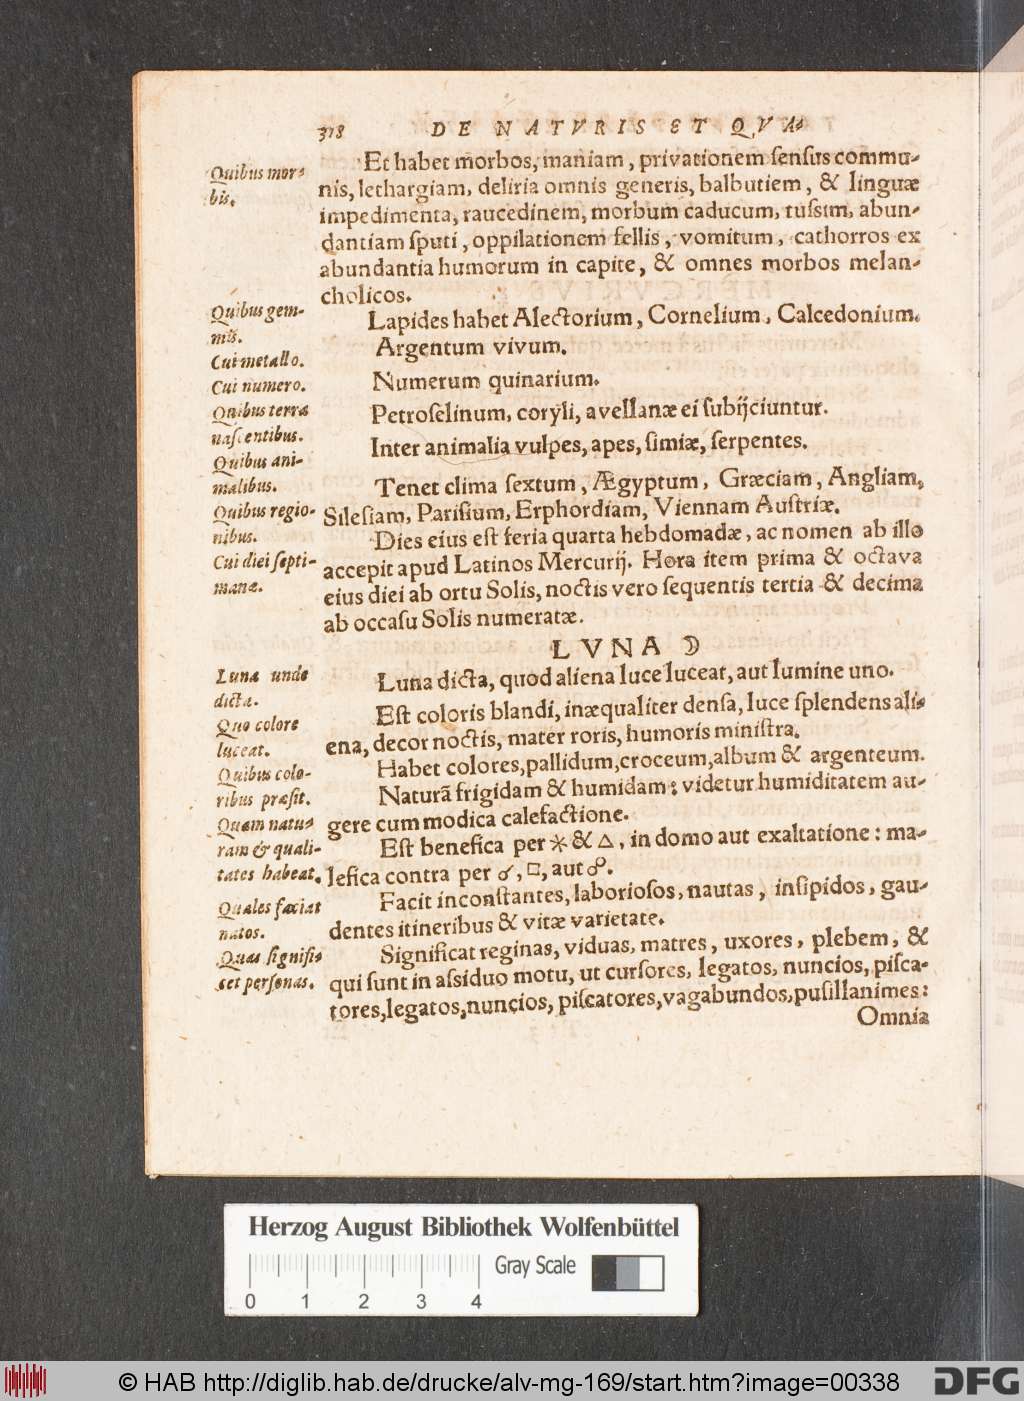 318 DE NATVRIS ET QVA-
Quibus mor-
bis.
Et habet morbos, maniam, privationem sensus commu-
nis, lethargiam, deliria omnis generis, balbutiem, & linguæ
impedimenta, raucedinem, morbum caducum, tussim, abun-
dantiam sputi, oppilationem fellis, vomitum, cathorros ex
abundantia humorum in capite, & omnes morbos melan-
cholicos.
Quibus gem-
mis.
Lapides habet Alectorium, Cornelium, Calcedonium.
Cui metallo.
Argentum vivum.
Cui numero.
Numerum quinarium.
Quibus terra
nascentibus.
Petroselinum, coryli, avellanæ ei subijciuntur.
Quibus ani-
malibus.
Inter animalia vulpes, apes, simiæ, serpentes.
Quibus regio-
nibus.
Tenet clima sextum, Ægyptum, Græciam, Angliam,
Silesiam, Parisium, Erphordiam, Viennam Austriæ.
Cui diei septi-
manæ.
Dies eius est feria quarta hebdomadæ, ac nomen ab illo
accepit apud Latinos Mercurij. Hora item prima & octava
eius diei ab ortu Solis, noctis vero sequentis tertia & decima
ab occasu Solis numeratæ.
LVNA ☽
Luna unde
dicta.
Luna dicta, quod aliena luce luceat, aut lumine uno.
Quo colore
luceat.
Est coloris blandi, inæqualiter densa, luce splendens ali-
ena, decor noctis, mater roris, humoris ministra.
Quibus colo-
ribus præsit.
Habet colores, pallidum, croceum, album & argenteum.
Quam natu-
ram & quali-
tates habeat.
Naturā frigidam & humidam: videtur humiditatem au-
gere cum modica calefactione.
Est benefica per ⚹ & △, in domo aut exaltatione: ma-
lefica contra per ☌, □, aut ☍.
Quales faciat
natos.
Facit inconstantes, laboriosos, nautas, insipidos, gau-
dentes itineribus & vitæ varietate.
Quas signifi-
cet personas.
Significat reginas, viduas, matres, uxores, plebem, &
qui sunt in assiduo motu, ut cursores, legatos, nuncios, pisca-
tores, legatos, nuncios, piscatores, vagabundos, pusillanimes:
Omnia
Herzog August Bibliothek Wolfenbüttel
Gray Scale
0 1 2 3 4
© HAB http://diglib.hab.de/drucke/alv-mg-169/start.htm?image=00338
DFG